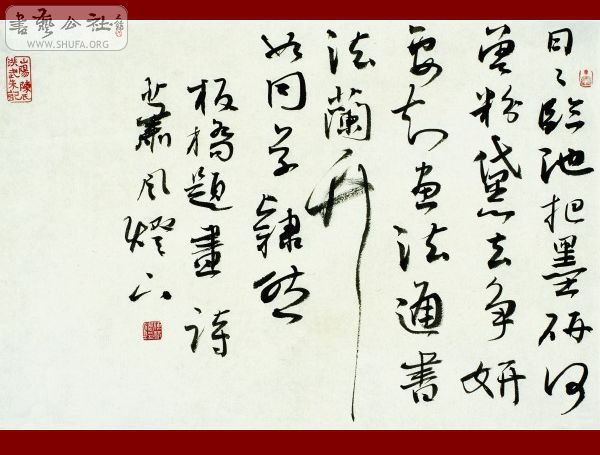 書藝公社
WWW.SHUFA.ORG
日〻臨池把墨研何
曾粉黛去争妍
要知画法通書
法蘭竹
如同草隸然
板橋題畫詩
風燈下